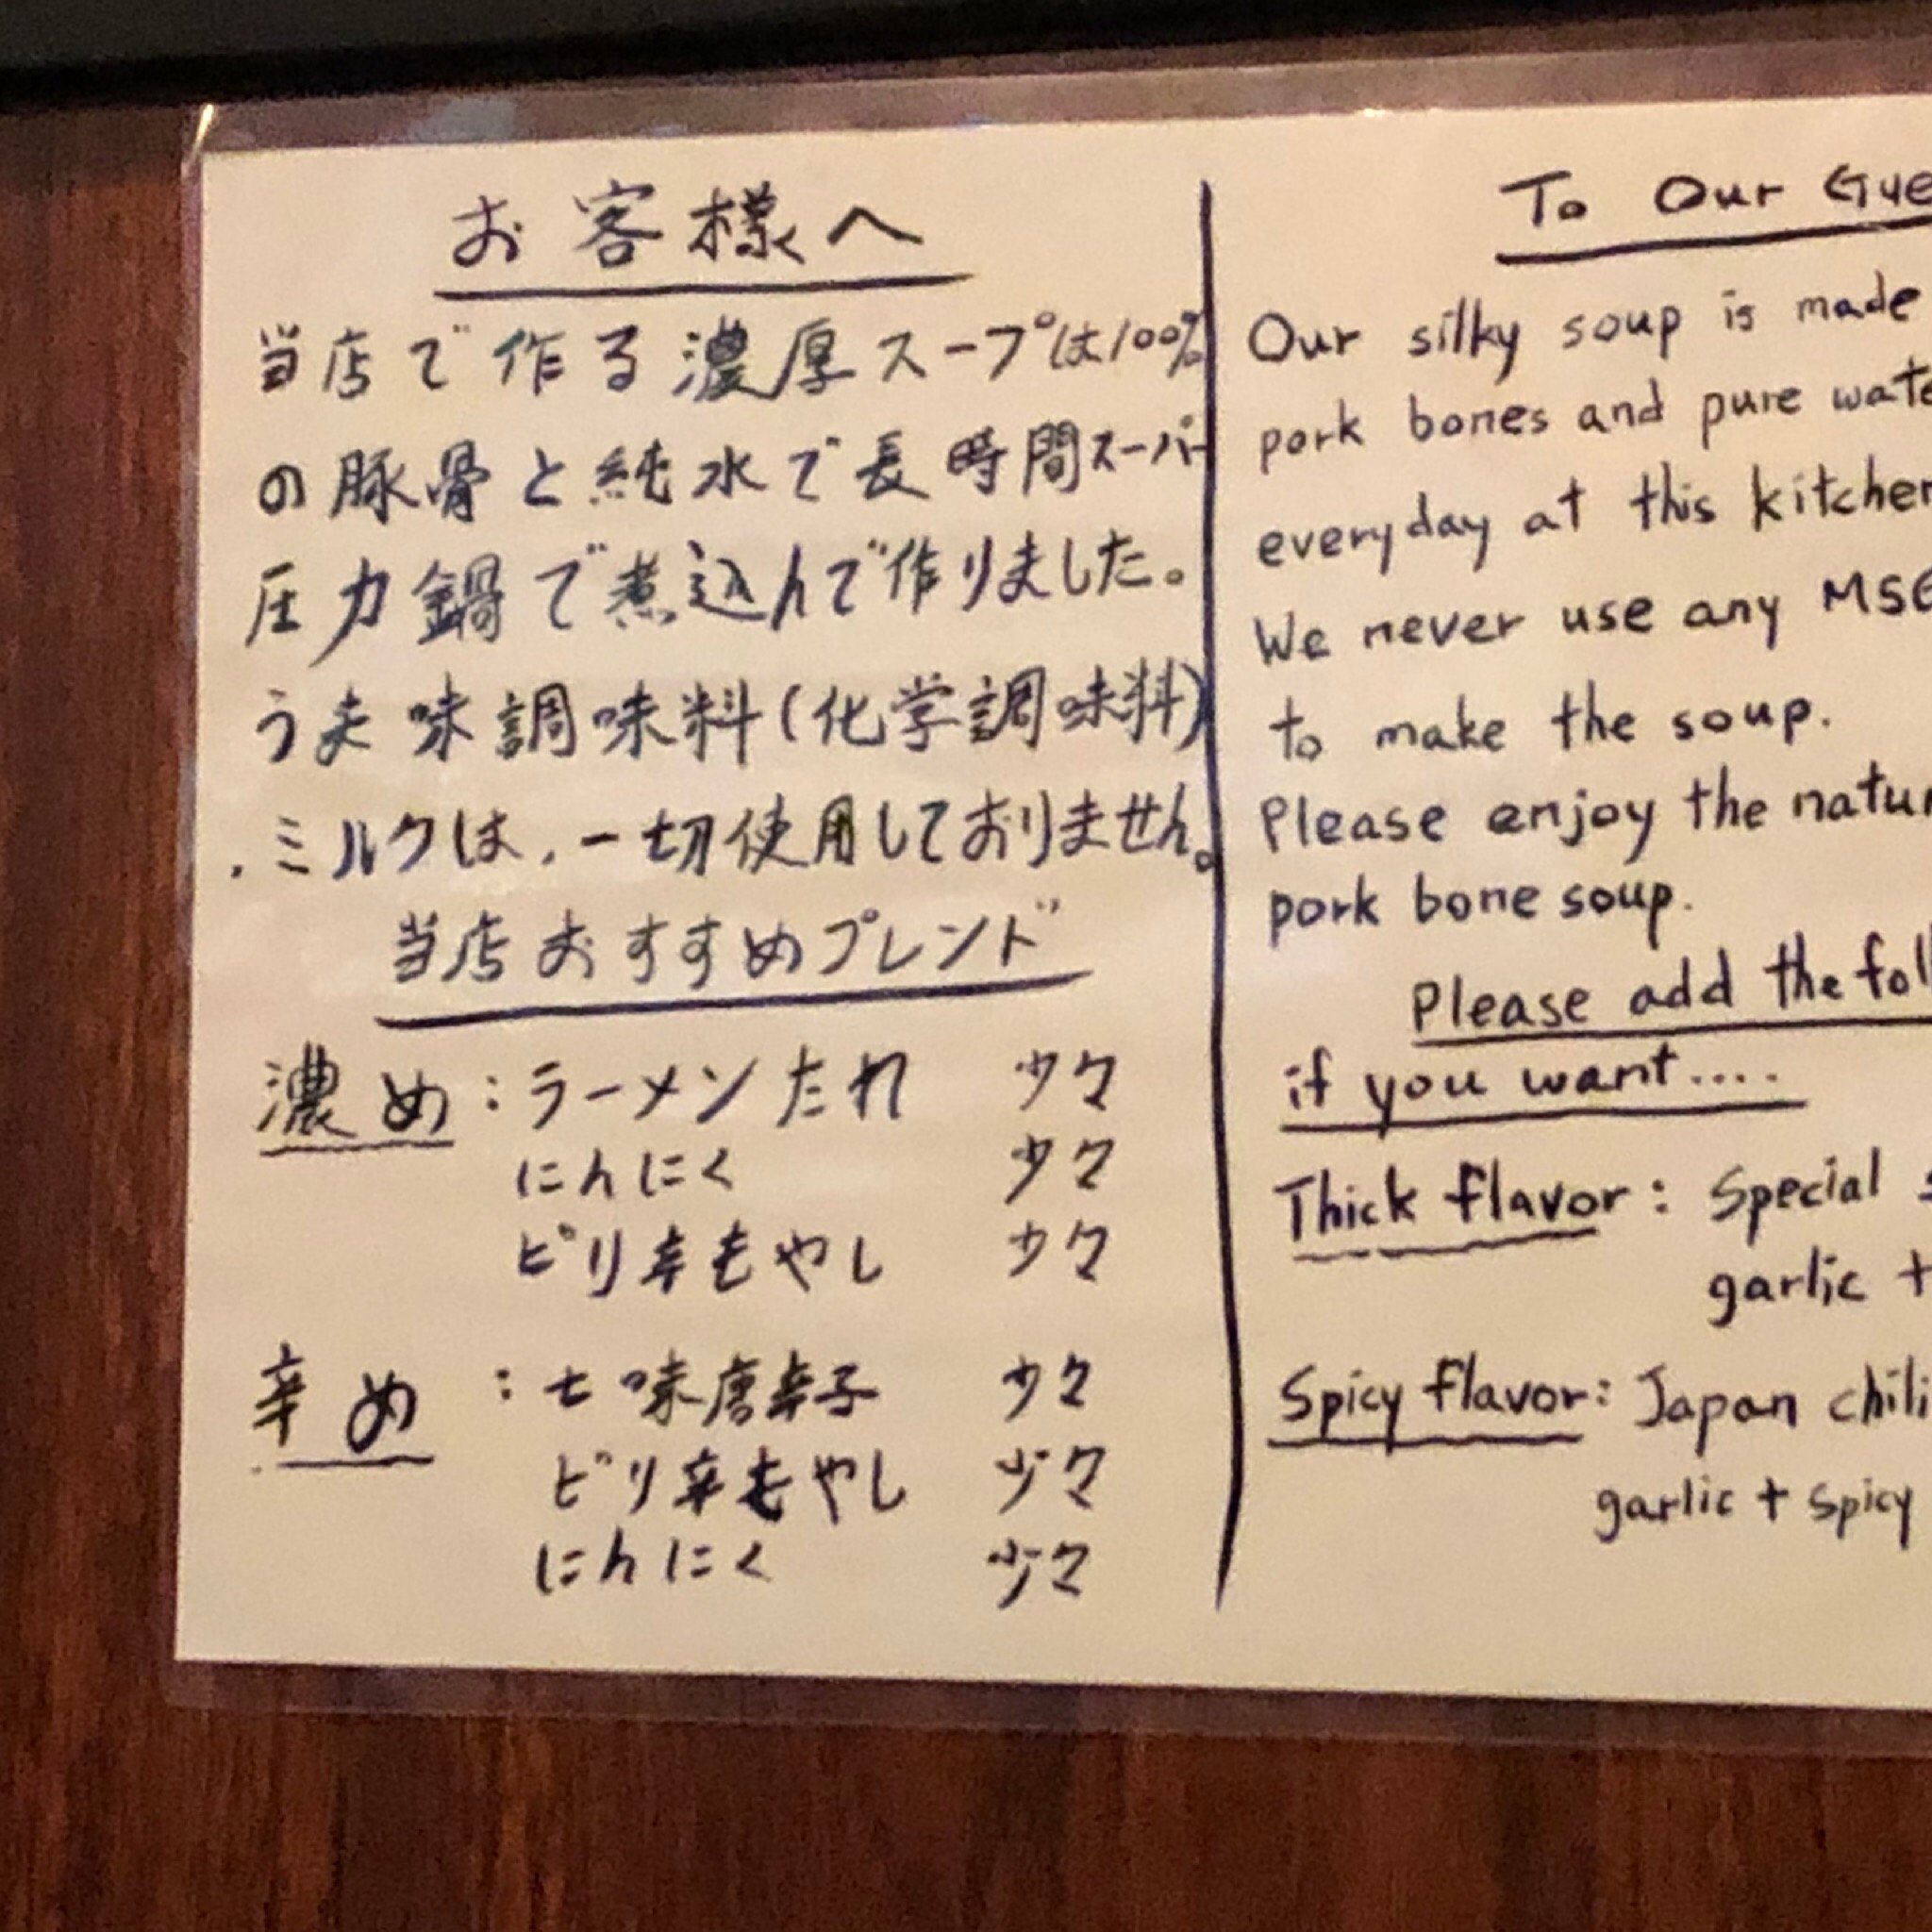 お客様へ
当店で作る濃厚スープは100%
の豚骨と純水で長時間スーパー
圧力鍋で煮込んで作りました。
うま味調味料(化学調味料)
・ミルクは、一切使用しておりません。
当店おすすめブレンド
濃め:ラーメンたれ 少々
にんにく 少々
ピリ辛もやし 少々
辛め:七味唐辛子 少々
ピリ辛もやし 少々
にんにく 少々
To Our Gue
Our silky soup is made
pork bones and pure wate
everyday at this kitchen
We never use any MSG
to make the soup.
Please enjoy the natur
pork bone soup.
Please add the foll
if you want....
Thick flavor: Special s
garlic +
Spicy flavor: Japan chili
garlic + spicy